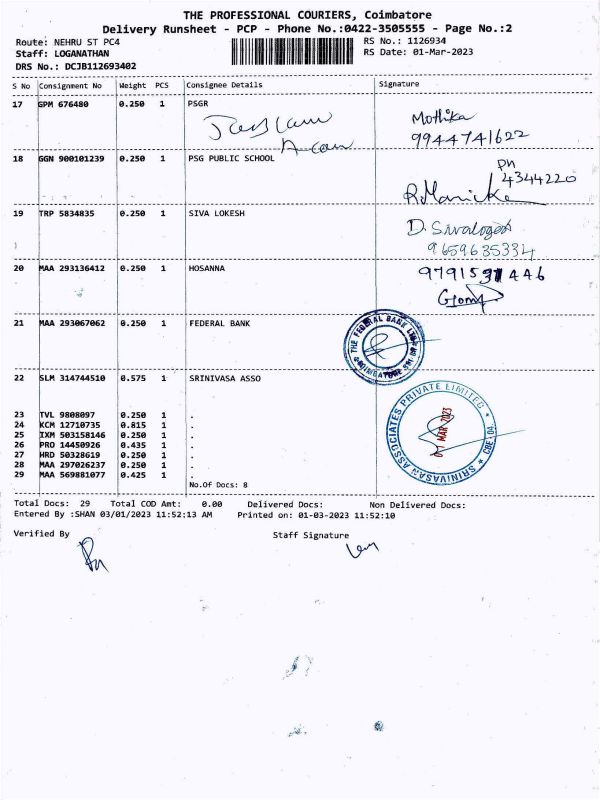 THE PROFESSIONAL COURIERS, Coimbatore
Delivery Runsheet - PCP - Phone No.:0422-3505555 - Page No.:2
Route: NEHRU ST PC4 RS No.: 1126934
Staff: LOGANATHAN RS Date: 01-Mar-2023
DRS No.: DCJB112693402
S No Consignment No Weight PCS Consignee Details Signature
17 GPM 676480 0.250 1 PSGR Mothika
9944741622
18 GGN 900101239 0.250 1 PSG PUBLIC SCHOOL Ph
4344220
19 TRP 5834835 0.250 1 SIVA LOKESH D. Sivalogesh
9659635334
20 MAA 293136412 0.250 1 HOSANNA 9791531446
21 MAA 293067062 0.250 1 FEDERAL BANK THE FEDERAL BANK LTD
COIMBATORE
22 SLM 314744510 0.575 1 SRINIVASA ASSO SRINIVASAN ASSOCIATES PRIVATE LIMITED
MAR 2023
CBE-04.
23 TVL 9808097 0.250 1 .
24 KCM 12710735 0.815 1 .
25 IXM 503158146 0.250 1 .
26 PRO 14450926 0.435 1 .
27 HRD 50328619 0.250 1 .
28 MAA 297026237 0.250 1 .
29 MAA 569881077 0.425 1 .
No.Of Docs: 8
Total Docs: 29 Total COD Amt: 0.00 Delivered Docs: Non Delivered Docs:
Entered By :SHAN 03/01/2023 11:52:13 AM Printed on: 01-03-2023 11:52:10
Verified By Staff Signature